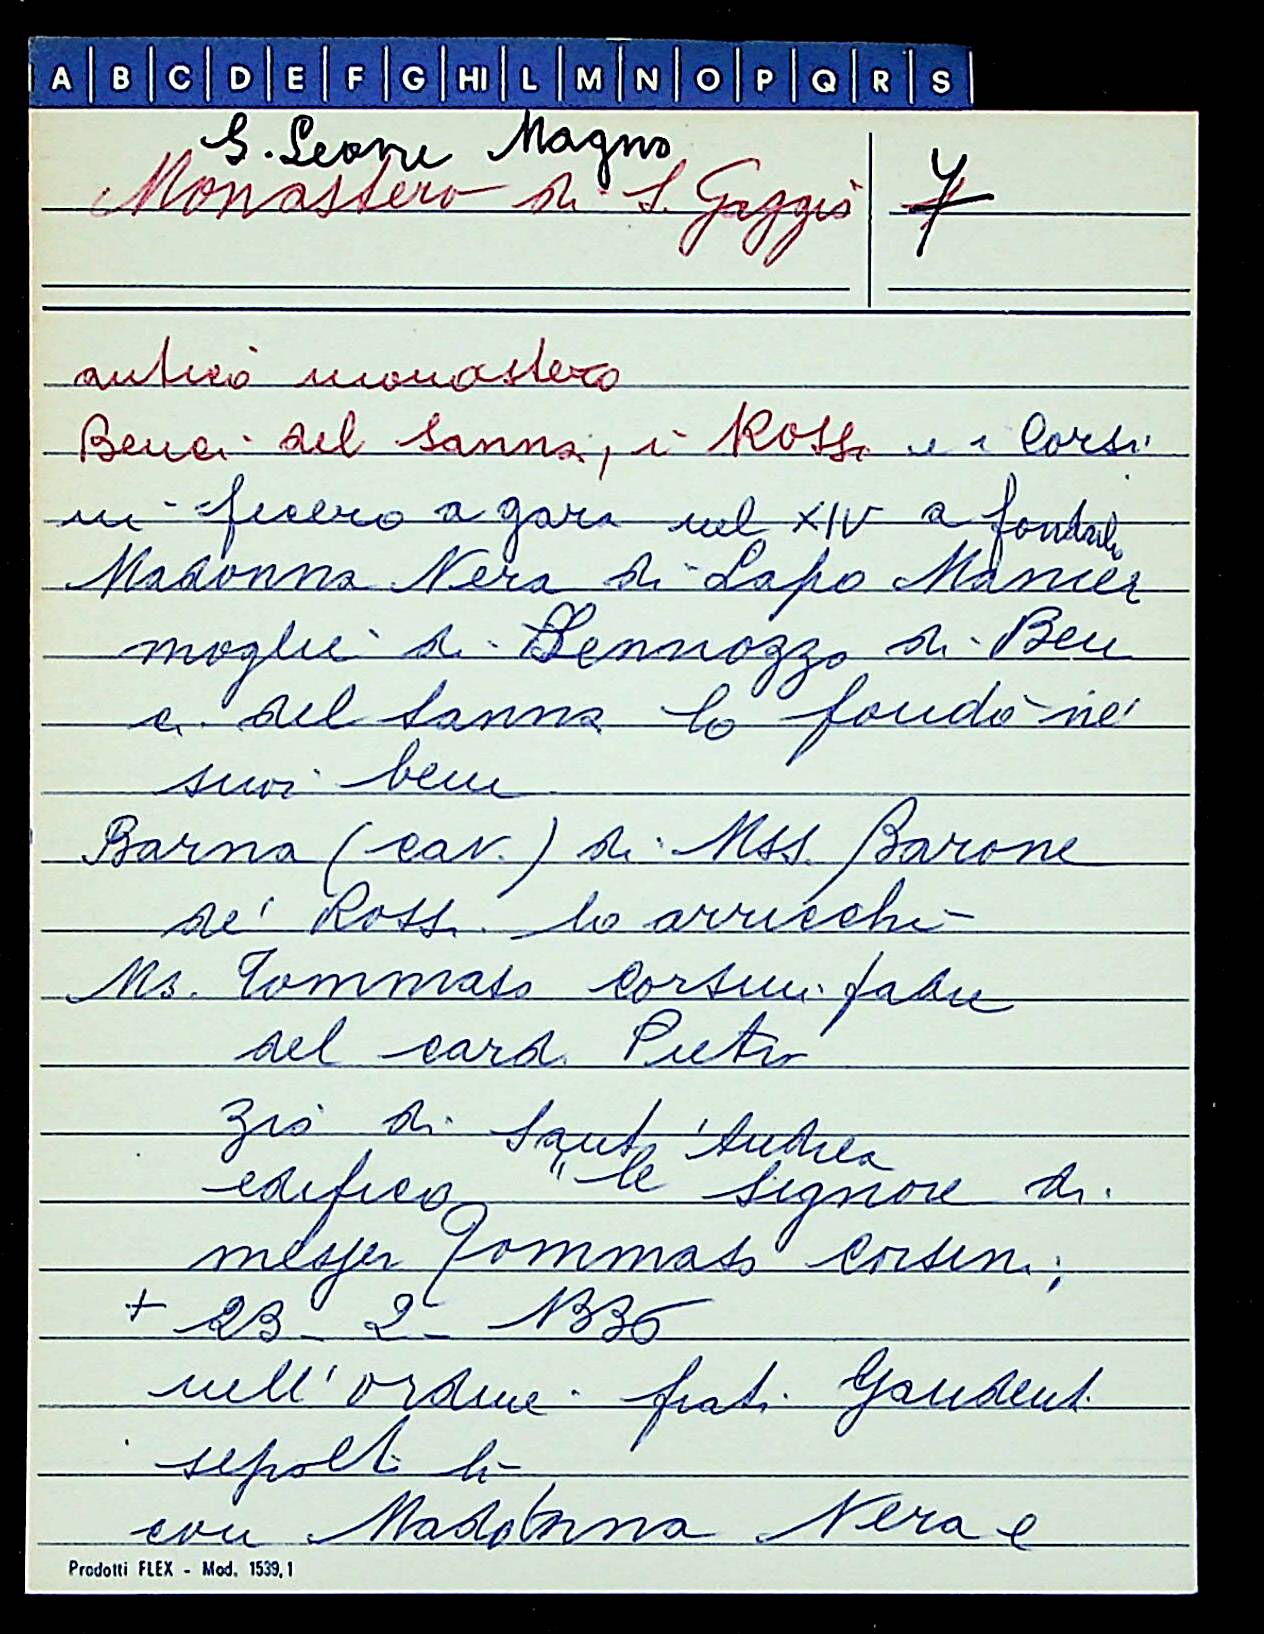 A B C D E F G HI L M N O P Q R S
S. Leone Magno
Monastero di S. Gaggio 7
antico monastero
Benci del Sanna, i Rossi e i Corsi
ni fecero a gara nel XIV a fondarlo
Madonna Nera di Lapo Manier
moglie di Dennozzo di Ben
ci del Sanna lo fondò ne'
suoi beni
Barna (cav.) di Mss. Barone
de' Rossi lo arricchì
Ms. Tommaso Corsini padre
del card. Pietro
zio di Sant'Andrea
edificò "le signore di
messer Tommaso Corsini;
+ 23 - 2 - 1336
nell'ordine frati Gaudenti
sepolti lì
con Madonna Nera e
Prodotti FLEX - Mod. 1539,1